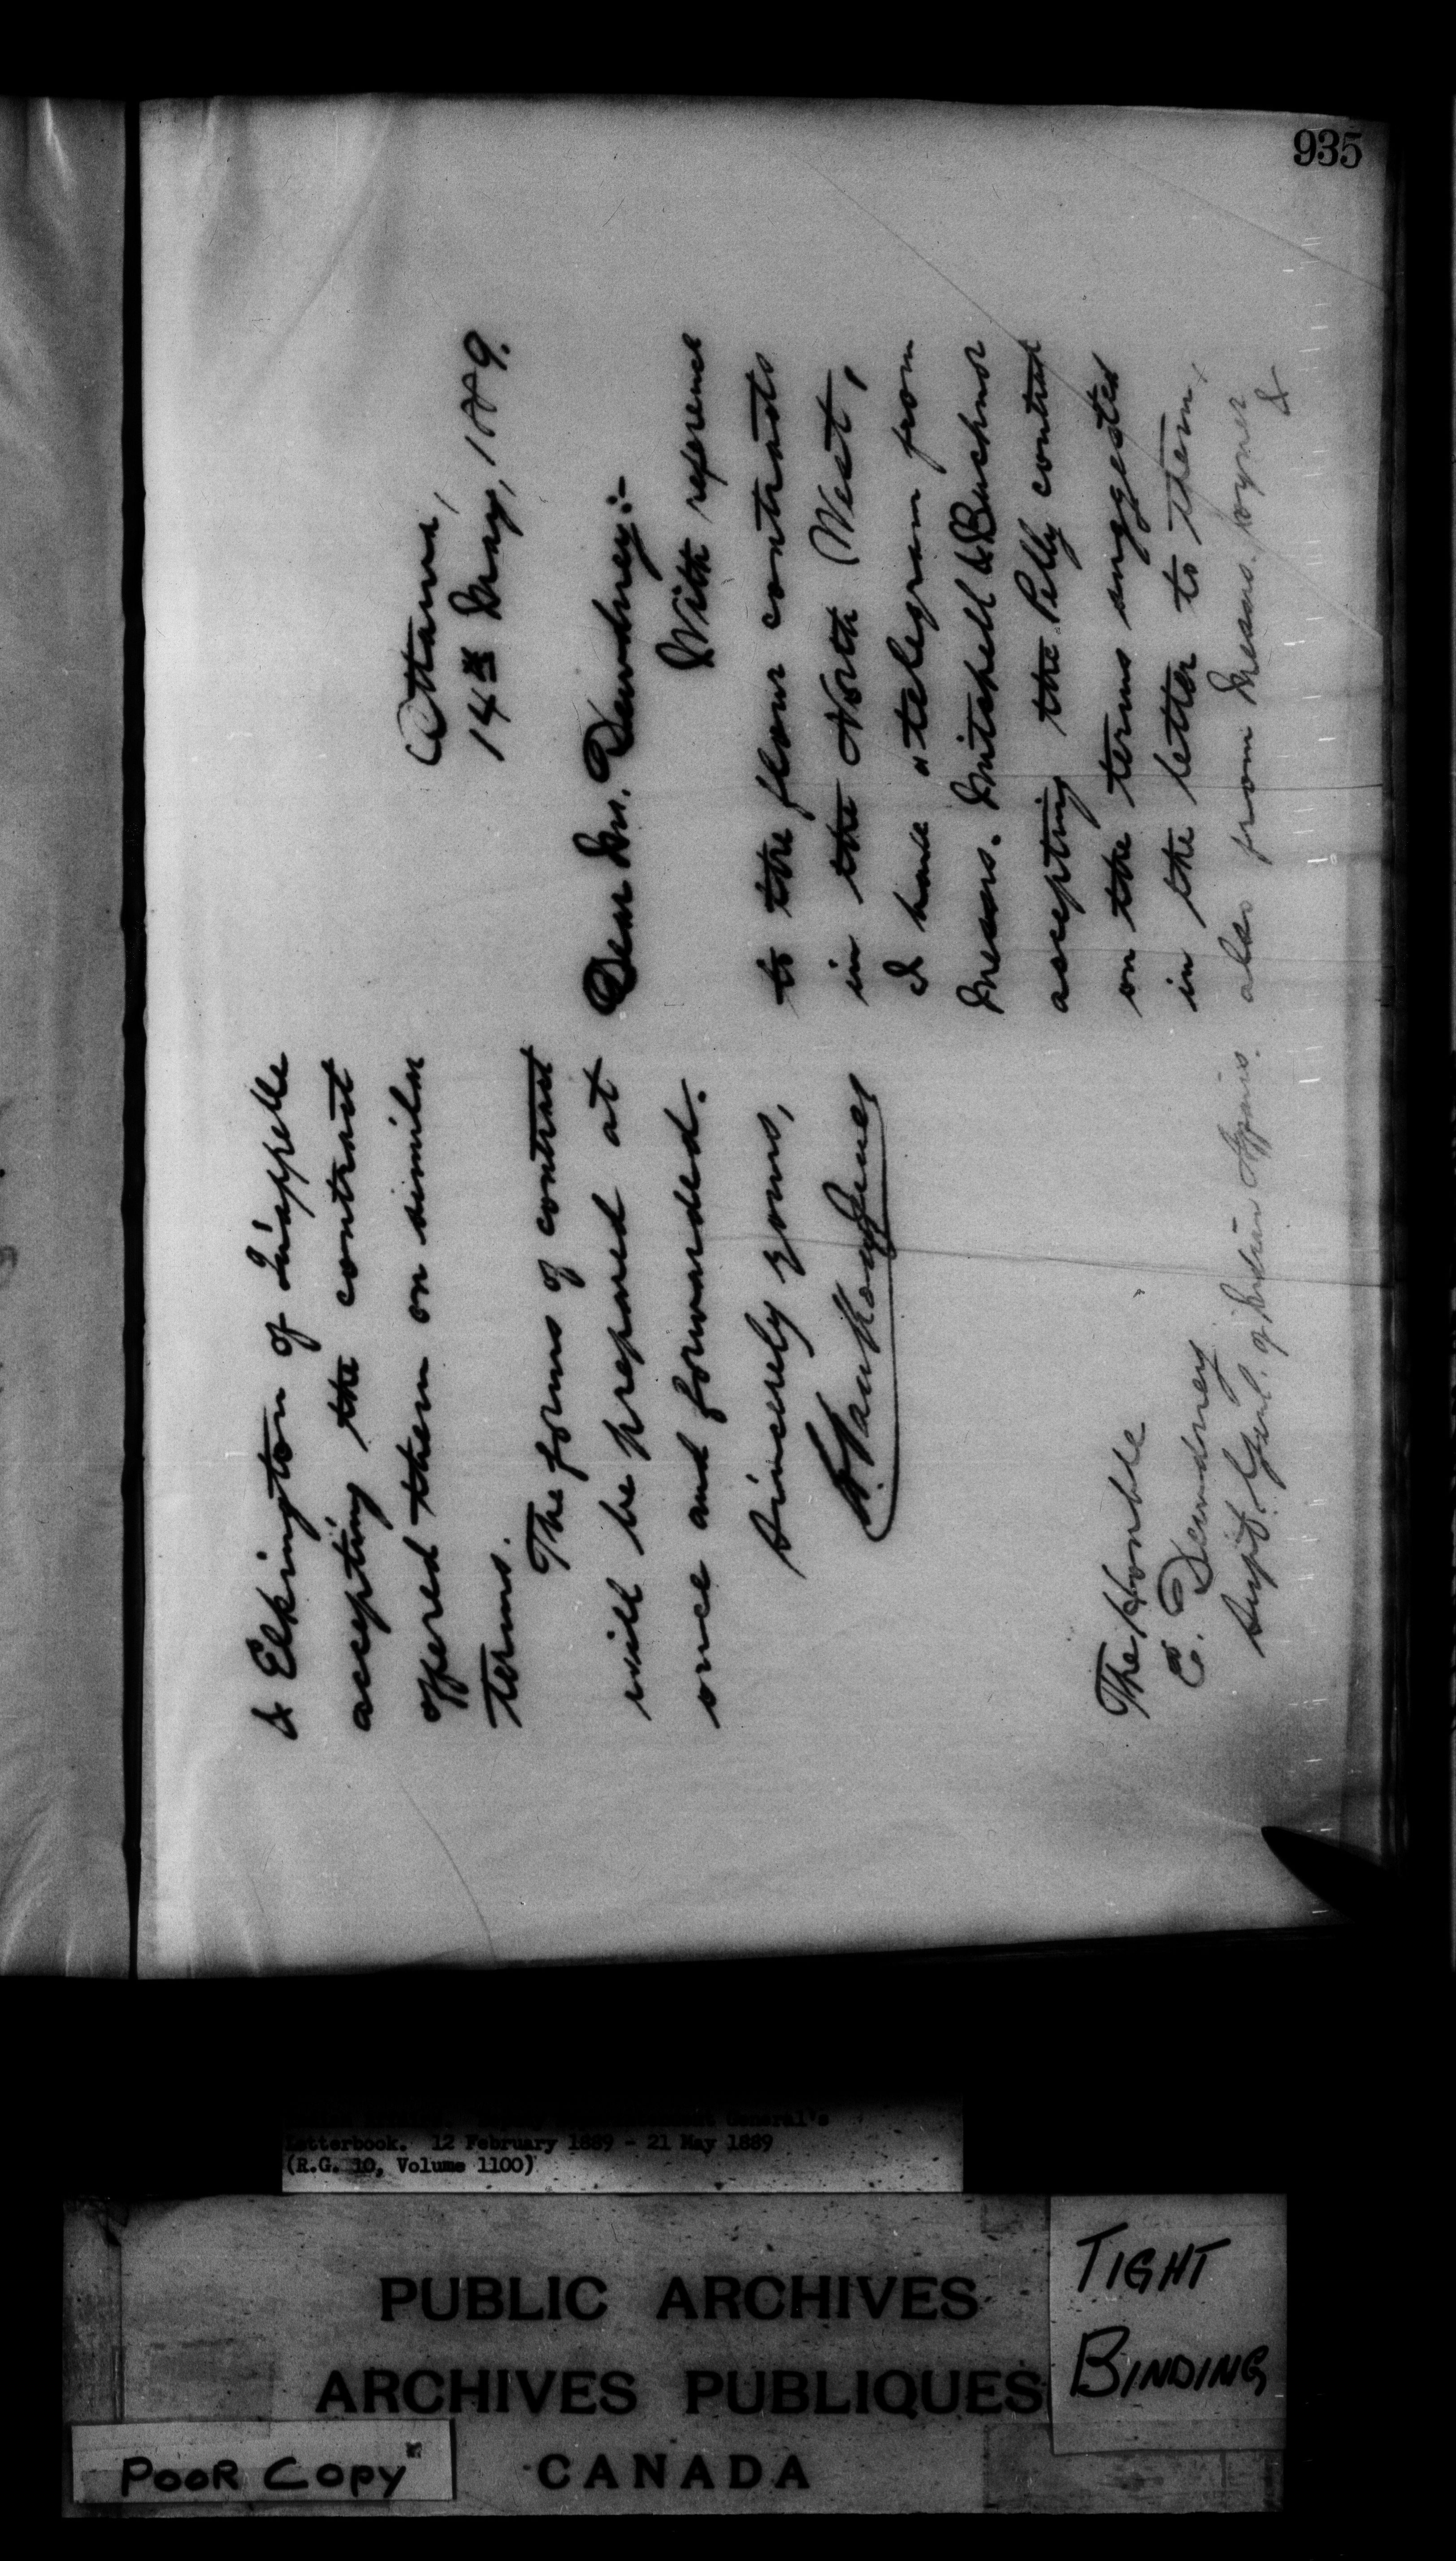 935
Ottawa,
14th May, 1889.
Dear Mr. Dewdney:-
With reference
to the flour contracts
in the North West,
I have a telegram from
Messrs. Mitchell & Bucknor
accepting the Pelly contract
on the terms suggested
in the letter to them,
also from Messrs. Joyner
&
& Elkington of Qu'appelle
accepting the contract
offered them on similar
terms.
The forms of contract
will be prepared at
once and forwarded.
Sincerely yours,
L. Vankoughnet
The Honble
E. Dewdney
Supt. Genl. of Indian Affairs.
General's
Letterbook. 12 February 1889 - 21 May 1889
(R.G. 10, Volume 1100)
PUBLIC ARCHIVES
ARCHIVES PUBLIQUES
CANADA
TIGHT
BINDING
POOR COPY